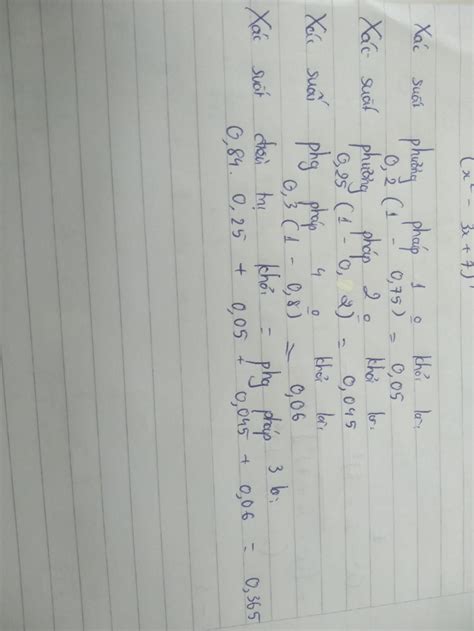 (x² - 3x + 7)
Xác suất phương pháp 1 o khỏi là:
0,2 (1 - 0,75) = 0,05
Xác suất phương pháp 2 o khỏi là:
0,25 (1 - 0, 2) = 0,045
Xác suất phg pháp 4 o khỏi là:
0,3 (1 - 0,8) = 0,06
Xác suất điều trị khỏi = phg pháp 3 là:
0,84. 0,25 + 0,05 + 0,045 + 0,06 = 0,365